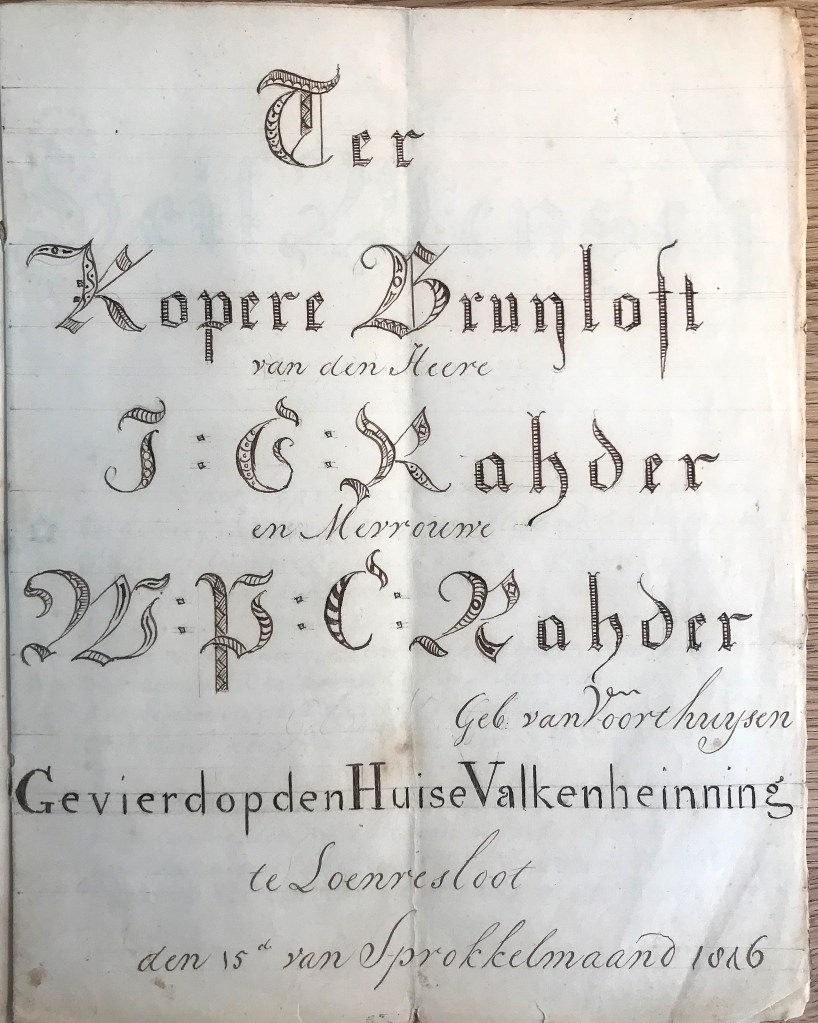 Ter
Kopere Bruyloft
van den Heere
J : C : Rahder
en Mevrouwe
W : P : C : Rahder
Geb: van Voorthuysen
Gevierd op den Huise Valkenheinning
te Loenresloot
den 15d van Sprokkelmaand 1816